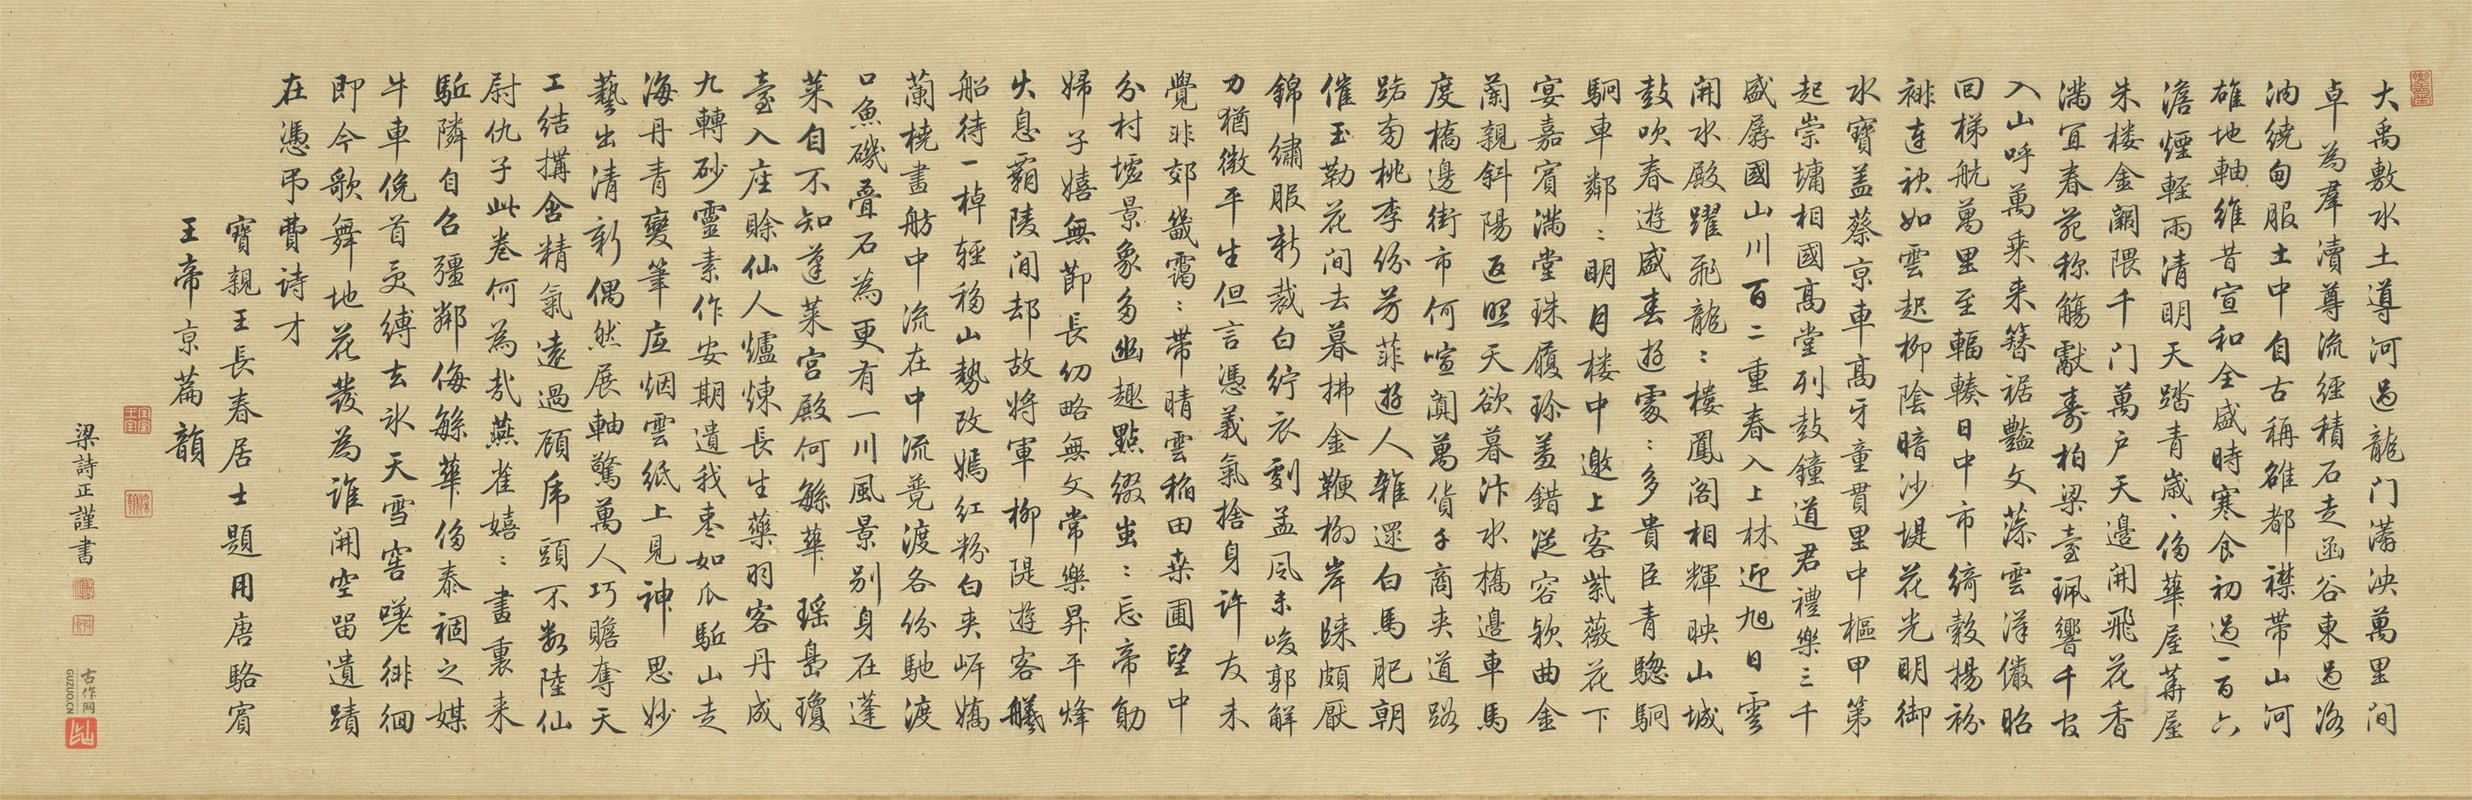 大禹敷水土導河過龍門蕩泱萬里間
卓為群瀆尊流經積石走函谷東過洛
汭繞甸服土中自古稱雄都襟帶山河
雄地軸維昔宣和全盛時寒食初過一百六
澹煙輕雨清明天踏青歲、侈華屋華屋
朱樓金闕隈千門萬户天邊開飛花香
滿宜春苑稱觴獻壽柏梁臺珮響千官
入山呼萬乘来簪裾豔文藻雲漢儼昭
回梯航萬里至輻輳日中市綺縠揚衯
裶連袂如雲起柳陰暗沙堤花光明御
水寶蓋蔡京車高牙童貫里中樞甲第
起崇墉相國高堂列鼓鐘道君禮樂三千
盛孱國山川百二重春入上林迎旭日雲
開水殿躍飛龍:樓鳳閣相輝映山城
鼓吹春遊盛春遊處:多貴臣青驄駉
駉車鄰:明月樓中邀上客紫薇花下
宴嘉賓滿堂珠履珍羞錯從容款曲金
蘭親斜陽返照天欲暮汴水橋邊車馬
度橋邊街市何喧闐萬貨千商夹道路
踮南桃李份芳菲遊人雜遝白馬肥朝
催玉勒花間去暮拂金鞭柳岸睐頗厭
錦繡服新裁白紵衣劇孟風未峻郭解
力猶微平生但言憑義氣捨身許友未
覺非郊畿靄:帶晴雲稲田桒圃望中
分村墟景象多幽趣點缀蚩:忘帝勛
婦子嬉無節長幼略無文常樂昇平烽
火息霸陵间却故将軍柳隄遊客艤
船待一棹輕移山勢改嫣红粉白夹岸嬌
蘭橈畫舫中流在中流競渡各份馳渡
口魚磯疊石為更有一川風景别身在蓬
萊自不知蓬萊宫殿何緐華瑶島瓊
臺入座賒仙人爐煉長生藥羽客丹成
九轉砂靈素作安期遺我棗如瓜駈山走
海丹青變筆底烟雲紙上見神思妙
藝出清新偶然展軸驚萬人巧瞻奪天
工結搆含精氣遠過顧虎頭不数陸仙
尉仇子此卷何為哉燕雀嬉:畫裏来
駈隣自召彊鄰侮緐華侈泰禍之媒
牛車俛首受縛去氷天雪窖嗟徘徊
即今歌舞地花發為誰開空留遺蹟
在憑弔費詩才
寶親王長春居士題用唐駱賓
王帝京篇韻
梁詩正謹書
古作网
GUZUO.CN